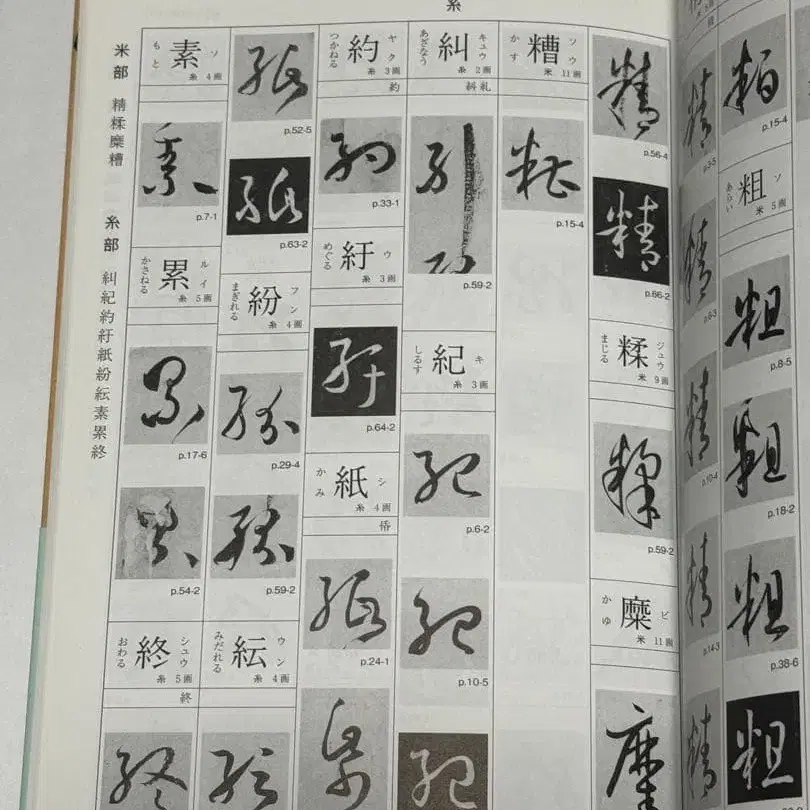 p.15-4
粗 ソ
あらい
米 5画
p.8-5
p.18-2
p.38-6
精
p.3-5
精
p.6-3
精
p.10-4
精
p.14-3
糸
精
p.56-4
精
p.66-2
糅 ジュウ
まじる
米 9画
p.59-2
糜 ビ
かゆ
米 11画
糟 ソウ
かす
米 11画
p.15-4
糾 キュウ
あざなう
糸 2画
p.59-2
紀 キ
しるす
糸 3画
紀
p.6-2
紀
p.10-5
紀
約 ヤク
つかねる
糸 3画
約
約
p.33-1
紆 ウ
めぐる
糸 3画
紆
p.64-2
紙 シ
かみ
糸 4画
紙
p.24-1
紙
p.52-5
紙
p.63-2
紛 フン
まぎれる
糸 4画
紛
p.29-4
紛
p.59-2
紜 ウン
みだれる
糸 4画
紜
素 ソ
もと
糸 4画
素
p.7-1
累 ルイ
かさねる
糸 5画
累
p.17-6
p.54-2
終 シュウ
おわる
糸 5画
終
終
米部 精糅糜糟 糸部 糾紀約紆紙紛紜素累終